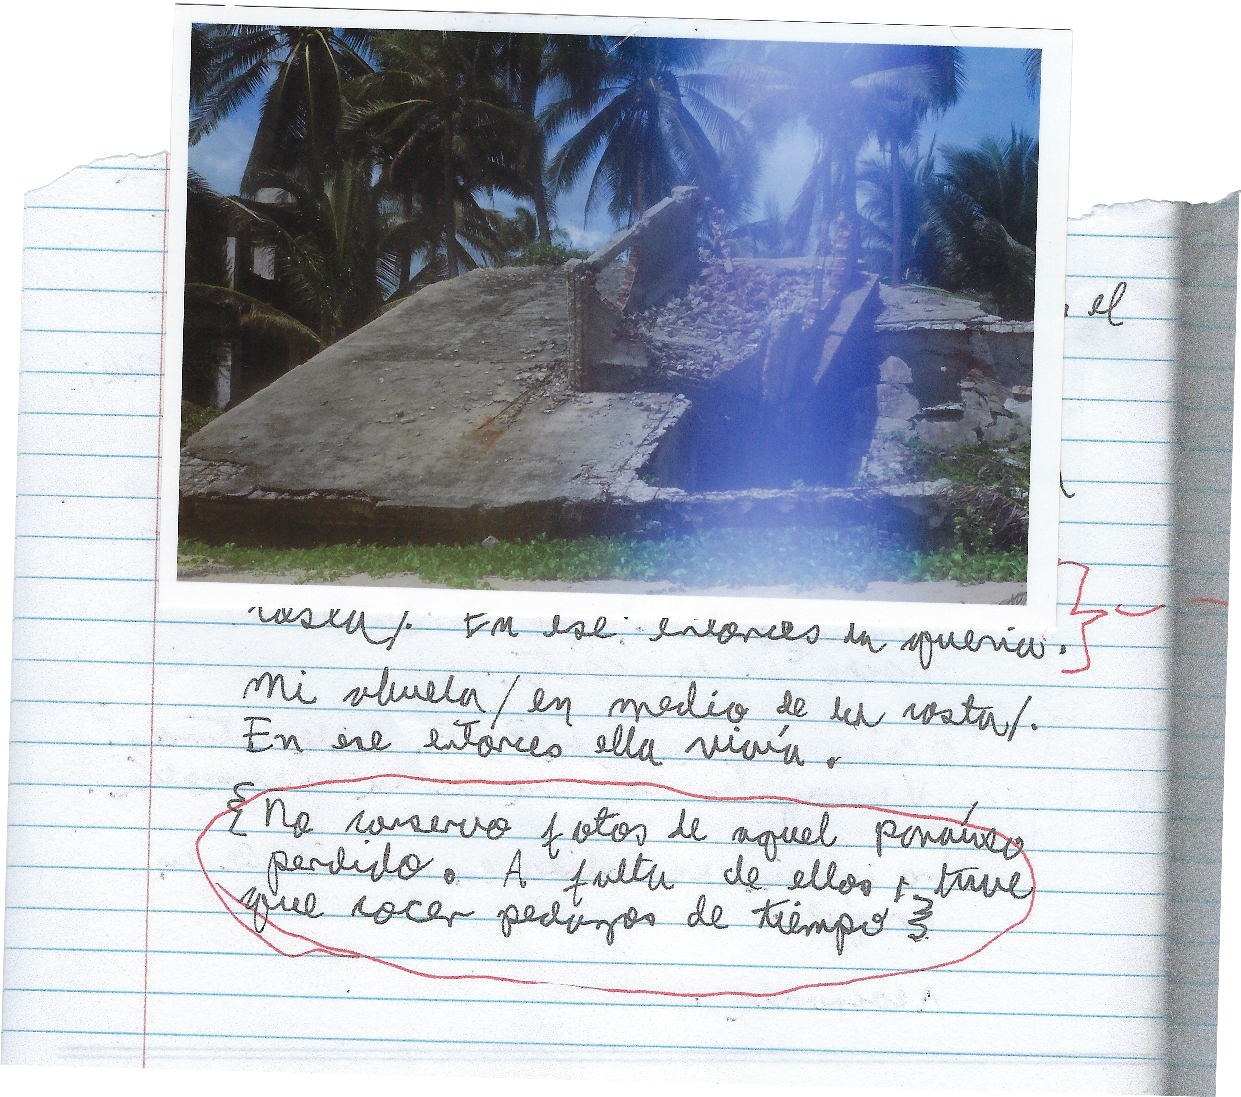 el
costa/. En ese entonces la quería.
mi abuela/en medio de la costa/.
En ese entonces ella vivía.
{No conservo fotos de aquel paraíso
perdido. A falta de ellos, tuve
que cocer pedazos de tiempo}